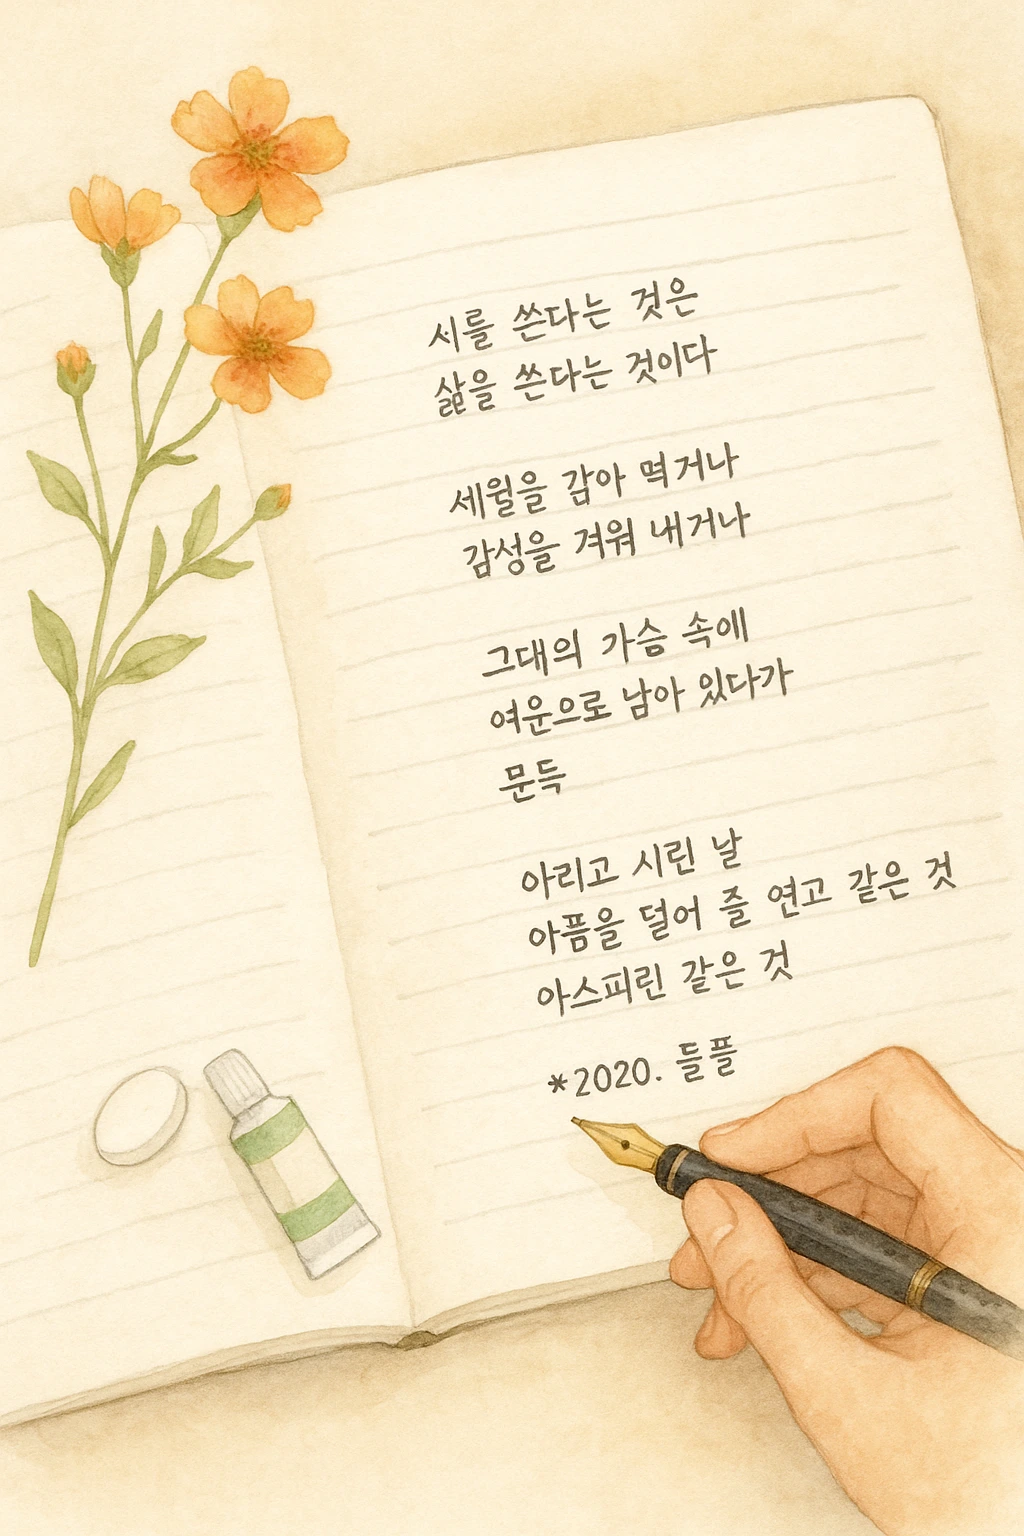 시를 쓴다는 것은
삶을 쓴다는 것이다
세월을 감아 먹거나
감성을 겨워 내거나
그대의 가슴 속에
여운으로 남아 있다가
문득
아리고 시린 날
아픔을 덜어 줄 연고 같은 것
아스피린 같은 것
*2020. 들플